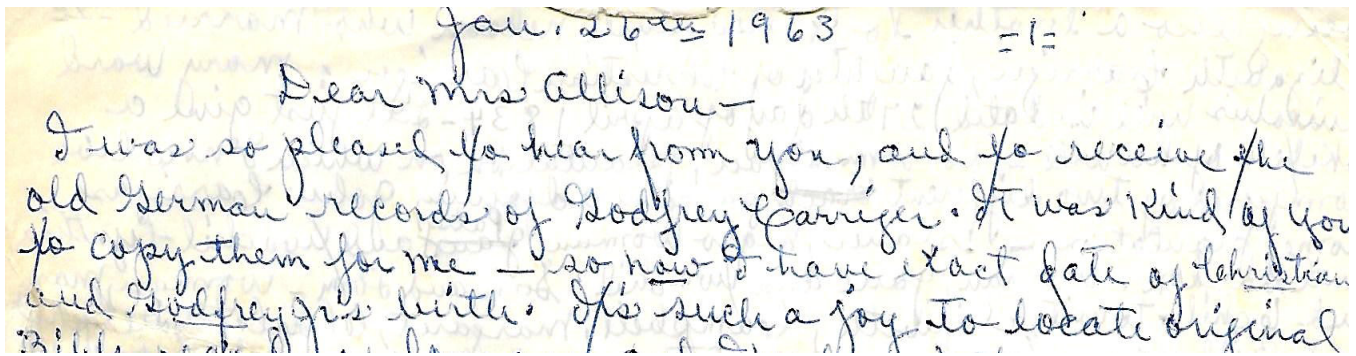 Jan. 26th 1963 =1=
Dear Mrs Allison—
I was so pleased to hear from you, and to receive the
old German records of Godfrey Carriger. It was kind of you
to copy them for me — so now I have exact date of Christian
and Godfrey Jr's birth. It's such a joy to locate original
Bible